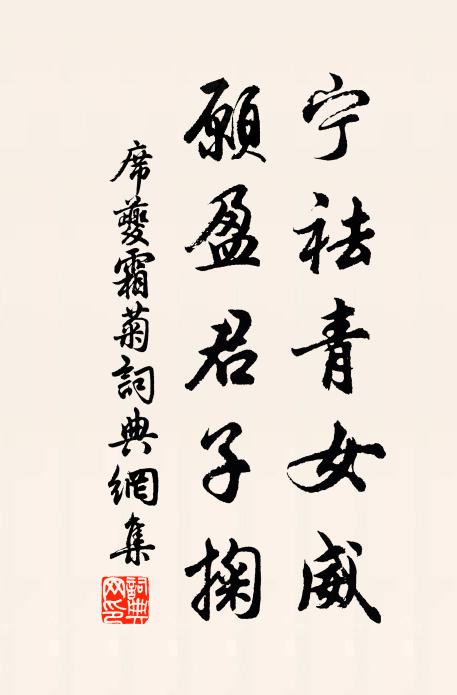 宁祛青女威
願盈君子掬
席夔霜菊詞典網集
詞典網印